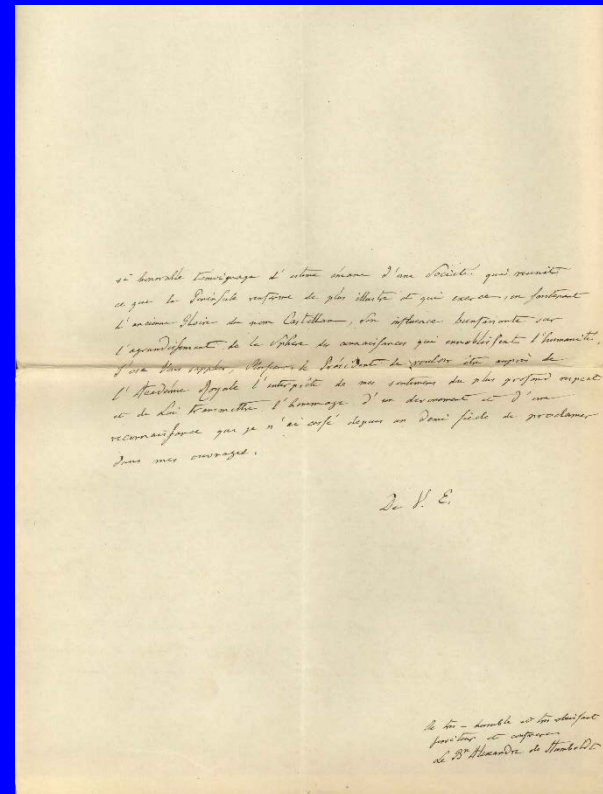 si honorable temoignage d'estime émane d'une Société qui reunit
ce que la Peninsule renferme de plus illustre et qui exerce, en soutenant
l'ancienne Gloire du nom Castillan, Son influence bienfaisante sur
l'agrandissement de la Sphère des connaissances qui ennoblissent l'humanité.
J'ose Vous supplier, Monsieur le Président de vouloir être auprès de
l'Académie Royale l'interprète de mes sentimens du plus profond respect
et de Lui transmettre l'hommage d'un devouement et d'une
reconnaissance que je n'ai cessé depuis un demi siècle de proclamer
dans mes ouvrages.
De V. E.
le très-humble et très obéissant
serviteur et confrère
Le Bn Alexandre de Humboldt